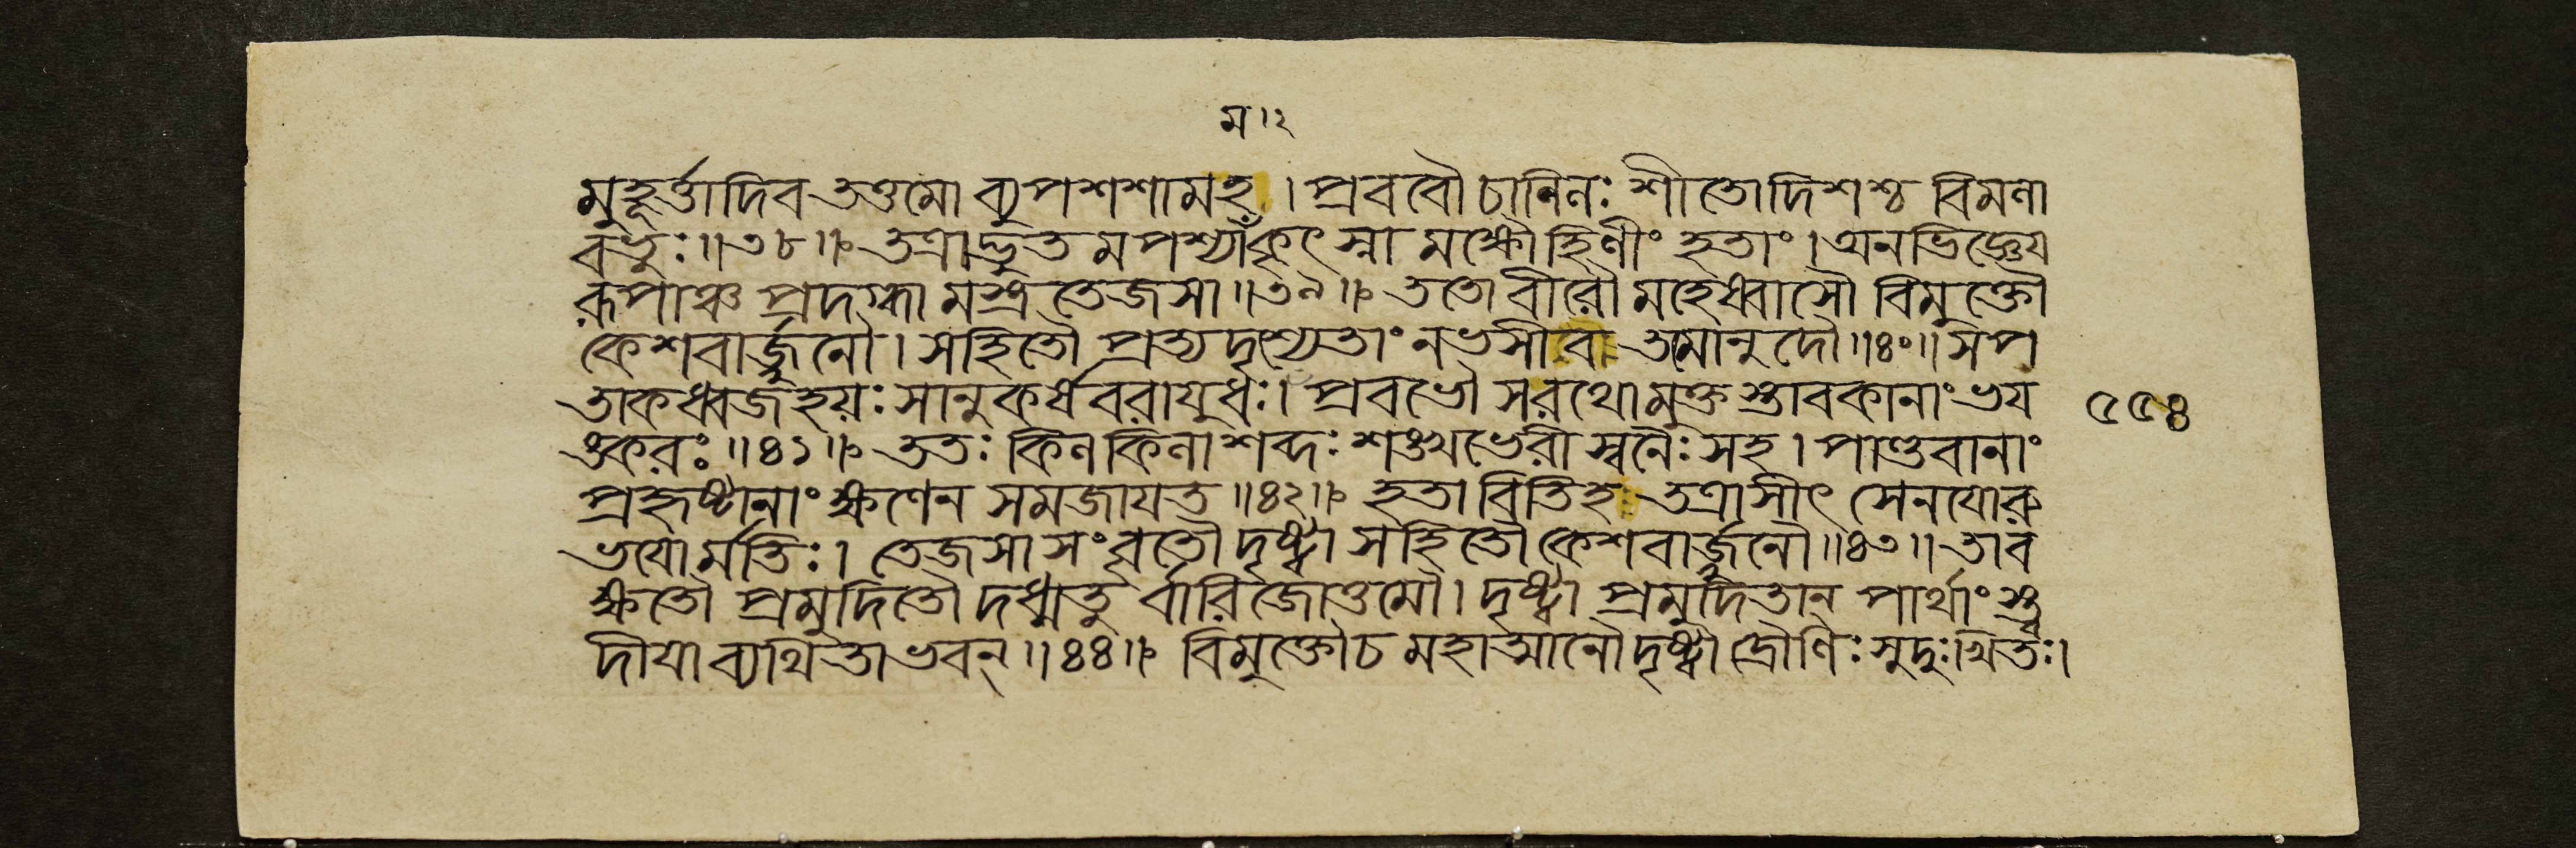 ম।২
মুহূর্ত্তাদিব তত্তমো ব্যুপশশামহ। প্রববৌ চানিনঃ শীতো দিশশ্চ বিমলা
বভুঃ॥৩৮॥ তত্রাদ্ভুতমপশ্যাঁ কৃৎস্নামক্ষৌহিণীং হতাং। অনভিজ্ঞেয
রূপাঞ্চ প্রদগ্ধামস্ত্র তেজসা॥৩৯॥ ততো বীরৌ মহেষ্বাসৌ বিমুক্তৌ
কেশবার্জ্জুনৌ। সহিতৌ প্রত্যদৃশ্যেতাং নভসীবো তমোনুদৌ॥৪০॥ সপ
তাকধ্বজহয়ঃ সানুকর্ষবরাযুধঃ। প্রবভৌ সরথোমুক্তস্তাবকানাং ভয
ঙ্করঃ॥৪১॥ ততঃ কিলকিলাশব্দঃ শঙ্খভেরীস্বনৈঃ সহ। পাণ্ডবানাং
প্রহৃষ্টানাং ক্ষণেন সমজাযত॥৪২॥ হতাবিতিহ তত্রাসীৎ সেনযোরু
ভযোর্মতিঃ। তেজসা সংবৃতৌ দৃষ্ট্বা সহিতৌ কেশবার্জ্জুনৌ॥৪৩॥ তাব
ক্ষতৌ প্রমুদিতৌ দধ্মতুর্বারিজোত্তমৌ। দৃষ্ট্বা প্রমুদিতান্ পার্থাংস্ত্ব
দীযা ব্যথিতাভবন্॥৪৪॥ বিমুক্তৌ চ মহাত্মানৌ দৃষ্ট্বা দ্রৌণিঃ সুদুঃখিতঃ।
৫৫৪